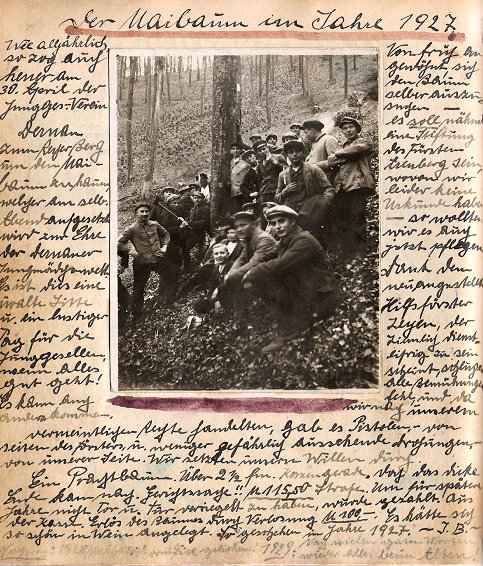 Der Maibaum im Jahre 1927.
Wie alljährlich
so zog auch
heuer am
30. April der
Jungges. Verein
Dernau
zum Berg
um den Mai-
baum
welcher am selb.
Abend aufgesetzt
wird zur Ehre
der Dernauer
Es ist dies eine
uralte Sitte
u. ein lustiger
Tag für die
Junggesellen,
wenn alles
gut geht!
Es kann auch
anders kommen.
Von früh an
gewöhnt sich
den Baum
selber auszu-
suchen —
es soll nähml.
eine Stiftung
des Fürsten
sein
wovon wir
leider keine
Urkunde haben
— so wollten
wir es auch
jetzt pflegen.
Dank dem
neuangestellt.
Hilfsförster
der
ziemlich dienst-
eifrig zu sein
scheint, schlugen
alle Bemühungen
fehl, und da
wir nach unserem
vermeintlichen Rechte handelten, gab es Pistolen,- von
seiten des Försters, u. weniger gefährlich aussehende Drohungen,-
von unserer Seite. Wir setzten unsern Willen durch.
Ein Prachtbaum. Über 2½ fm. kerzengrade, doch das dicke
Ende kam nach. Gerichtssache!! M 115,50 Strafe. Um für spätere
Jahre nicht Tor u. Tür verriegelt zu haben, wurde gezahlt. Aus
der Erlös des Baumes durch Verlosung M 100-. Es hätte sich
so schön in Wein angelegt. So geschehen im Jahre 1927. - J.B. -